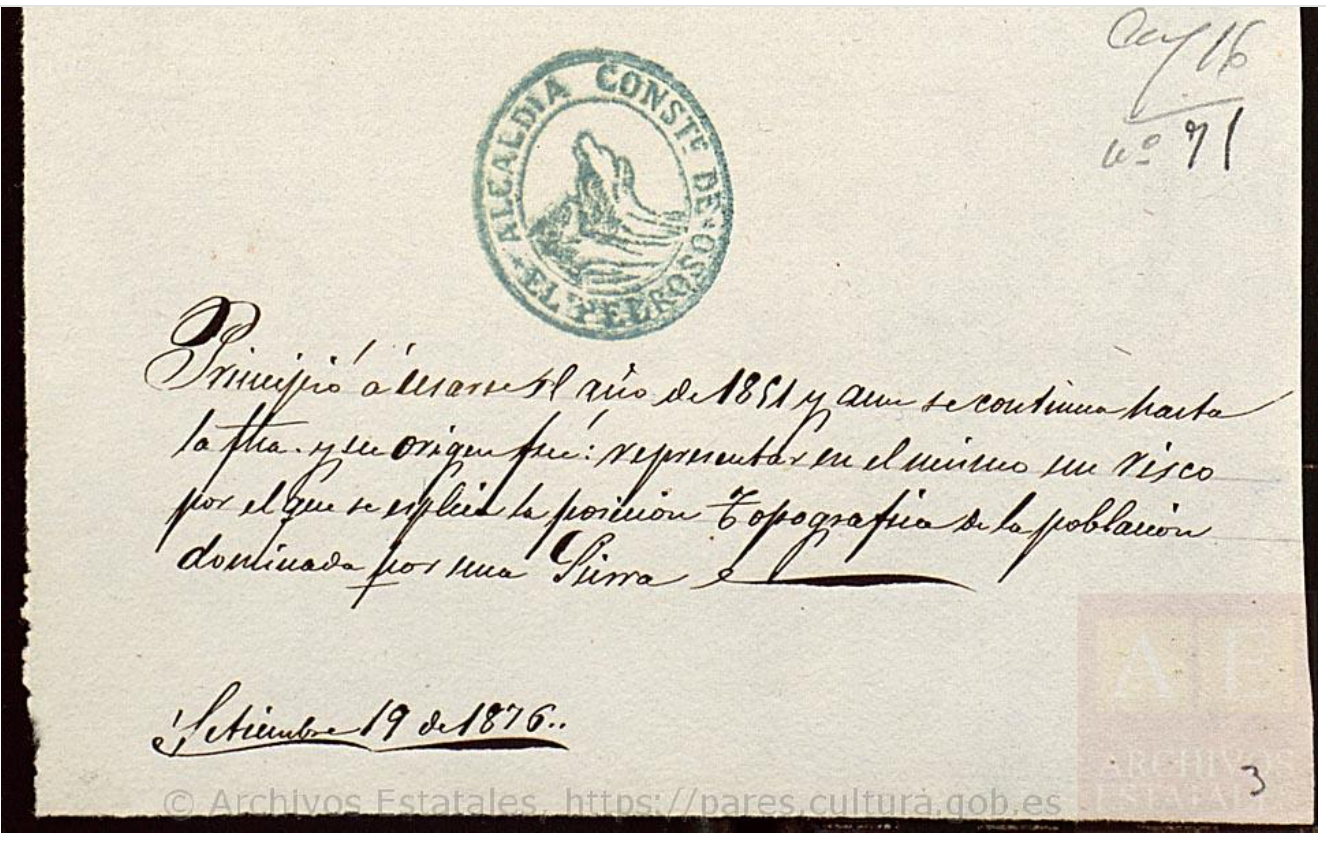 Caj 16
nº 71
ALCALDIA CONSTE DE
EL PEDROSO
Principió á usarse el año de 1851 y aun se continua hasta
la fha. y su origen fué: representar en el mismo un risco
por el que se esplica la posición Topografica de la población
dominada por una Sierra
Setiembre 19 de 1876..
AE
ARCHIVOS
ESTATALES
3
© Archivos Estatales, https://pares.cultura.gob.es